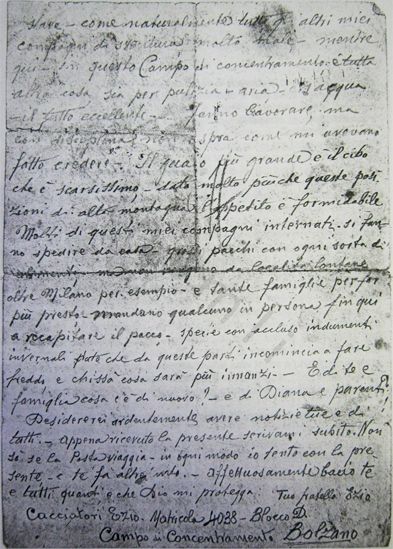 stare - come naturalmente tutti gl'altri miei
compagni di sventura molto male - mentre
qui in questo Campo di concentramento è tutta
altra cosa sia per pulizia - aria - acqua
il tutto eccellente - fanno lavorare, ma
con disciplina non aspra come mi avevano
fatto credere - Il guaio più grande è il cibo
che è scarsissimo - dato molto più che queste posi
zioni di alta montagna l'appetito è formidabile
Molti di questi miei compagni internati si fan
no spedire da casa pacchi con ogni sorta di
da località lontane
oltre Milano per esempio e tante famiglie per far
più presto mandano qualcuno in persona fin qui
a recapitare il pacco - specie con accluso indumenti
invernali dato che da queste parti incomincia a fare
freddo e chissà cosa sarà più innanzi - Ed a te e
famiglia cosa c'è di nuovo? - e di Diana e parenti?
Desidererei ardentemente avere notizie tue e di
tutti - Appena ricevuto la presente scrivimi subito. Non
so se la Posta viaggia - in ogni modo io tento con la pre
sente - e te fa altrettanto - Affettuosamente bacio te
e tutti quanti e che Dio mi protegga Tuo fratello Ezio
Cacciatori Ezio - Matricola 4028 - Blocco D
Campo di Concentramento Bolzano